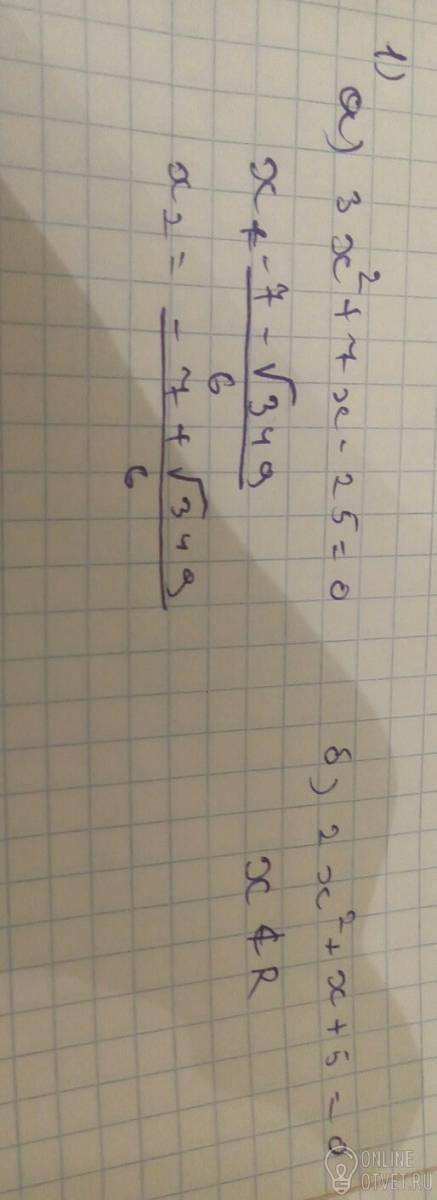 1)
а) 3x²+7x-25=0
x₁=-7-√349
6
x₂=-7+√349
6
б) 2x²+x+5=0
x∉R
ONLINE
OTVET.RU